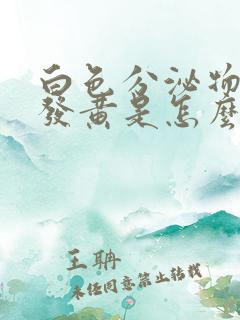 白色分泌物
發黃是怎麼
王聃
未经同意禁止转载